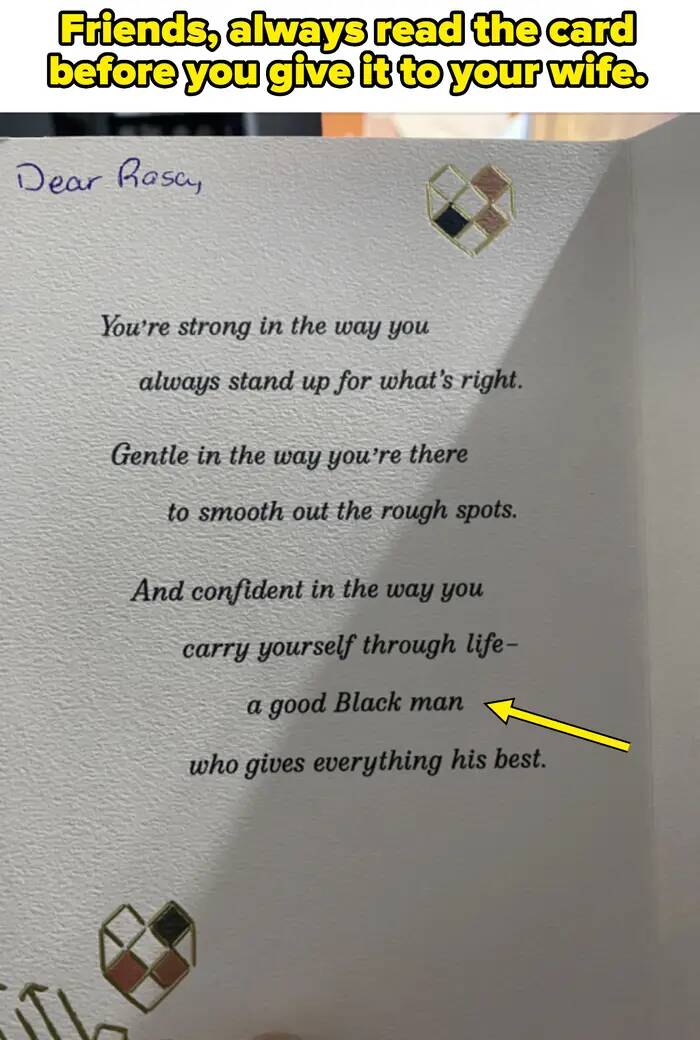 Friends, always read the card
before you give it to your wife.
Dear Rasa,
You're strong in the way you
always stand up for what's right.
Gentle in the way you're there
to smooth out the rough spots.
And confident in the way you
carry yourself through life–
a good Black man
who gives everything his best.